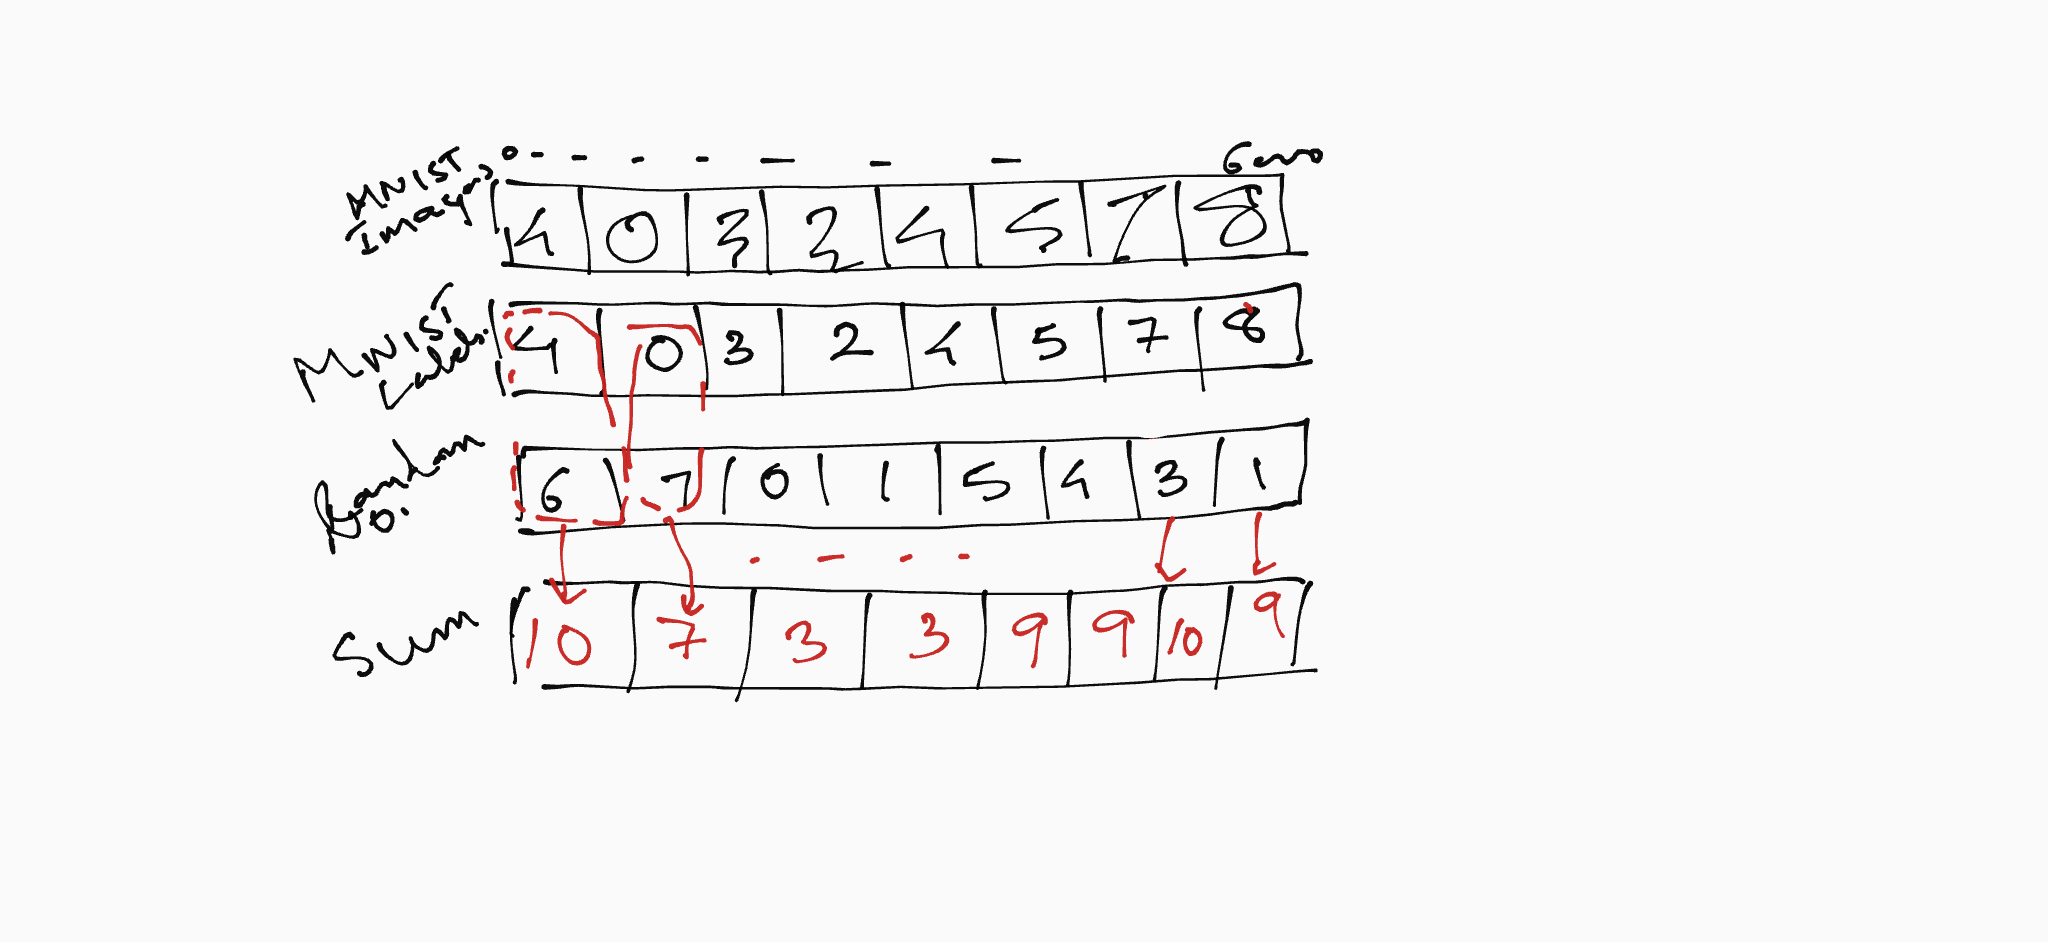 0 - - - - - - - 60000
MNIST Images 4 0 3 2 4 5 7 8
MNIST Labels. 4 0 3 2 4 5 7 8
Random no. 6 7 0 1 5 4 3 1
Sum 10 7 3 3 9 9 10 9